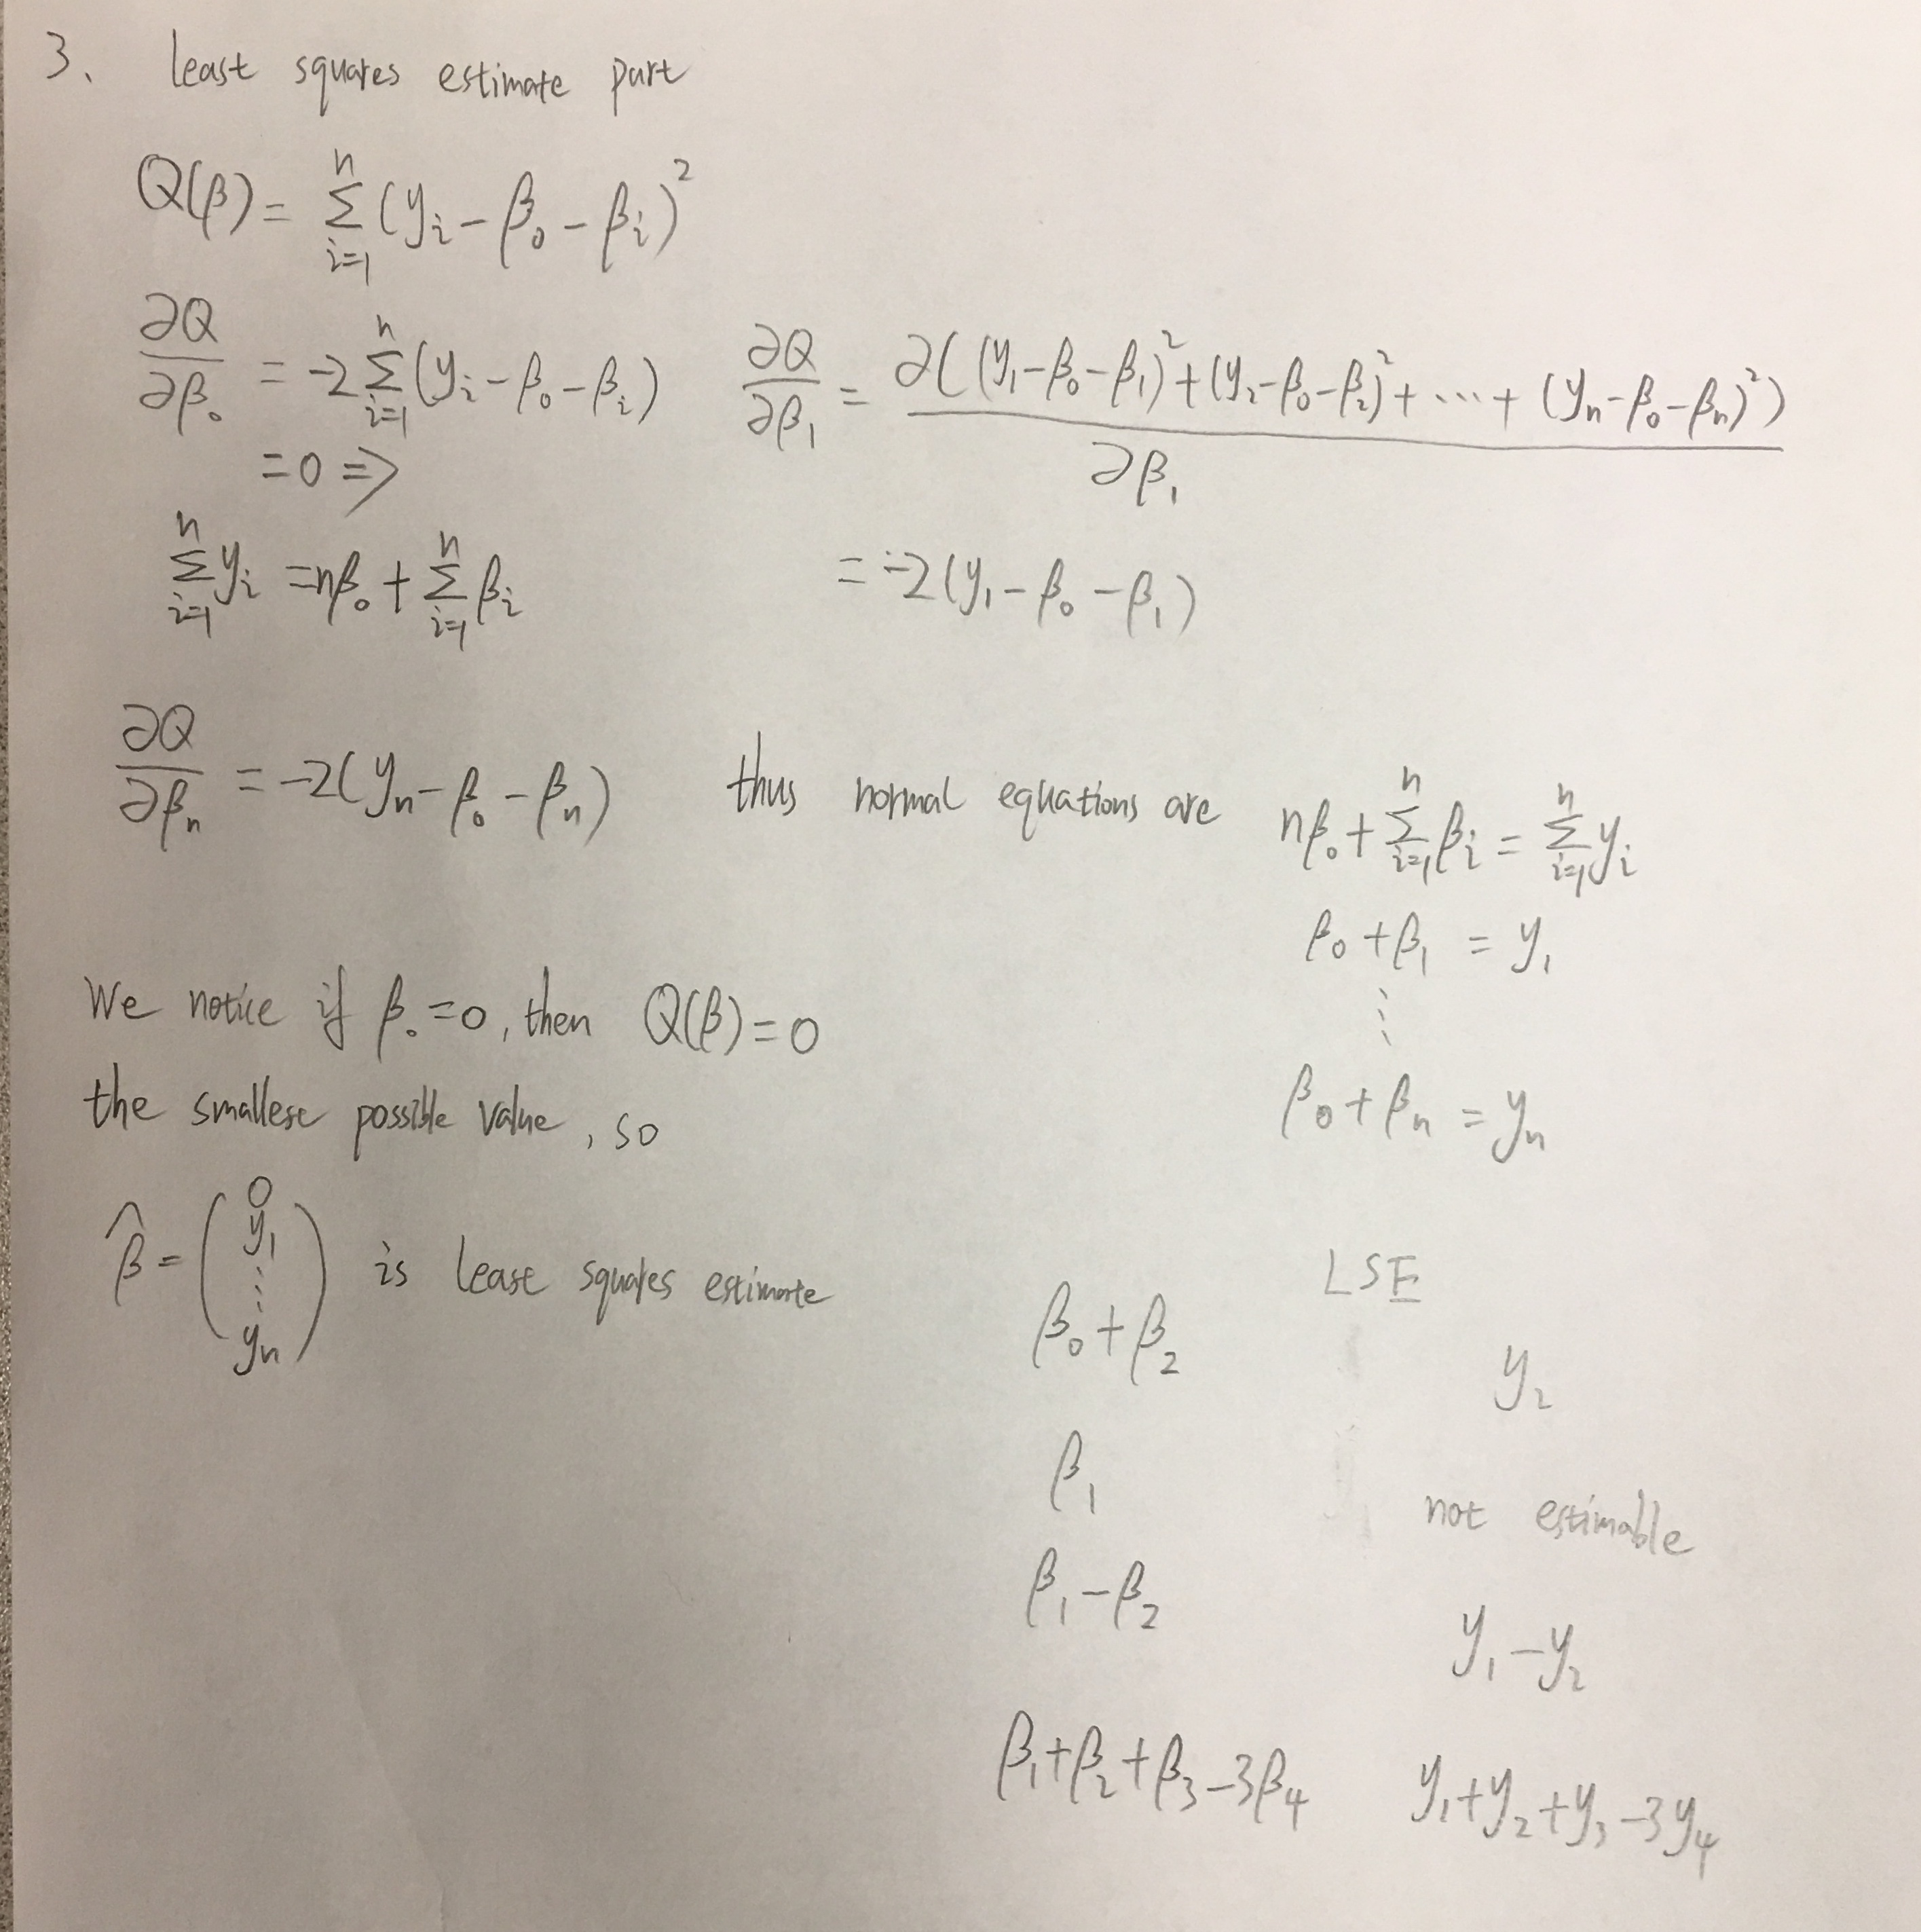 3. Least squares estimate part
Q(β) = Σ_{i=1}^{n} (y_i - β_0 - β_i)^2
∂Q/∂β_0 = -2 Σ_{i=1}^{n} (y_i - β_0 - β_i)
= 0 =>
Σ_{i=1}^{n} y_i = nβ_0 + Σ_{i=1}^{n} β_i
∂Q/∂β_1 = ∂((y_1 - β_0 - β_1)^2 + (y_2 - β_0 - β_2)^2 + ... + (y_n - β_0 - β_n)^2) / ∂β_1
= -2(y_1 - β_0 - β_1)
∂Q/∂β_n = -2(y_n - β_0 - β_n)
thus normal equations are nβ_0 + Σ_{i=1}^{n} β_i = Σ_{i=1}^{n} y_i
β_0 + β_1 = y_1
⋮
β_0 + β_n = y_n
We notice if β_0 = 0, then Q(β) = 0
the smallest possible value, so
β̂ = (0 y_1 ⋮ y_n) is least squares estimate
LSE
β_0 + β_2 y_2
β_1 not estimable
β_1 - β_2 y_1 - y_2
β_1 + β_2 + β_3 - 3β_4 y_1 + y_2 + y_3 - 3y_4